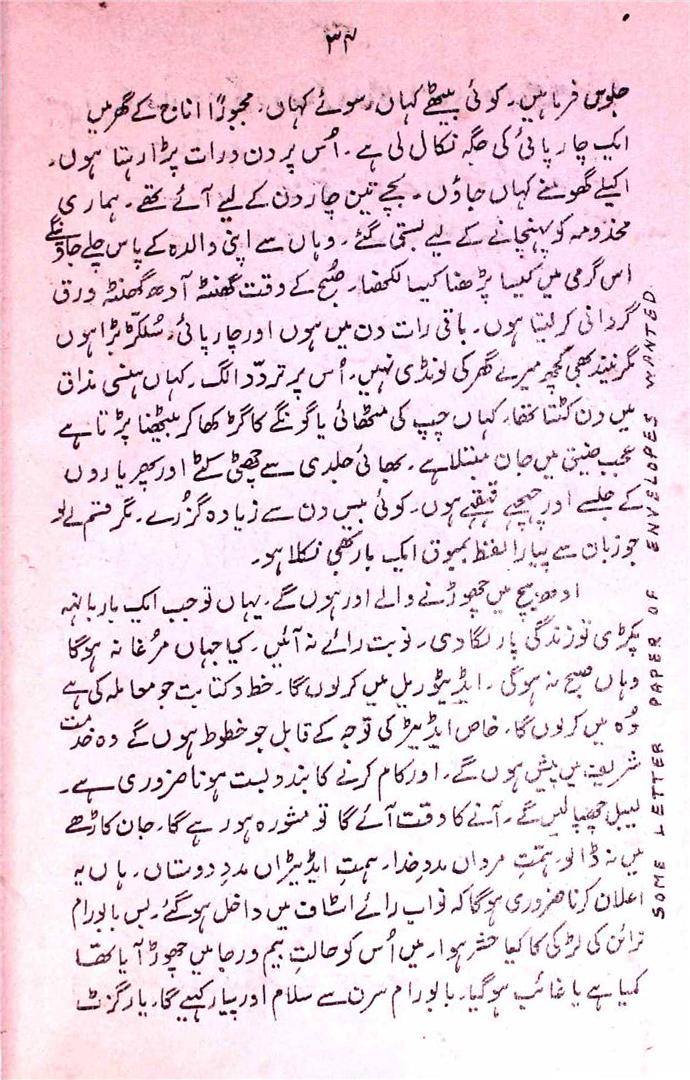 ۳۴
جلوس فرما ہیں۔ کوئی بیٹھے کہاں، سوئے کہاں۔ مجبوراً اناج کے گھر میں
ایک چارپائی کی جگہ نکال لی ہے۔ اُس پر دن و رات پڑا رہتا ہوں۔
اکیلے گھومنے کہاں جاؤں۔ بچے تین چار دن کے لیے آئے تھے۔ ہماری
مخدومہ کو پہنچانے کے لیے بستی گئے۔ وہاں سے اپنی والدہ کے پاس چلے جاوینگے
اس گرمی میں کیسا پڑھنا کیسا لکھنا۔ صُبح کے وقت گھنٹہ آدھ گھنٹہ ورق
گردانی کر لیتا ہوں۔ باقی رات دن میں ہوں اور چارپائی۔ سُلکّڑ بڑا ہوں
مگر نیند بھی کچھ میرے گھر کی لونڈی نہیں۔ اُس پر تردّد الگ۔ کہاں ہنسی مذاق
میں دن کٹتا تھا۔ کہاں چپ کی مٹھائی یا گونگے کا گڑ کھا کر بیٹھنا پڑتا ہے
عجب ضیق میں جان مبتلا ہے۔ بھائی جلدی سے چھٹی کٹے اور پھر یاروں
کے جلسے اور چہچہے قہقہے ہوں۔ کوئی بیس دن سے زیادہ گزرے۔ مگر قسم لے لو
جو زبان سے پیارا لفظ بمبوق ایک بار بھی نکلا ہو۔
اودھ بیچ میں چھوڑنے والے اور ہوں گے۔ یہاں تو جب ایک بار بانہہ
پکڑی تو زندگی پار لگا دی۔ نوبت رائے نہ آئیں۔ کیا جہاں مرُغا نہ ہوگا
وہاں صبح نہ ہوگی۔ ایڈیٹوریل میں کر لوں گا۔ خط و کتابت جو معاملہ کی ہے
وُہ میں کر لوں گا۔ خاص ایڈیٹر کی توجہ کے قابل جو خطوط ہوں گے وہ خدمت
شریف میں پیش ہوں گے۔ اور کام کرنے کا بندوبست ہونا ضروری ہے۔
لیبل چھپا لیں گے۔ آنے کا وقت آئے گا تو مشورہ ہو رہے گا۔ جان گاڑھے
میں نہ ڈالو۔ ہمّتِ مرداں مددِ خدا۔ ہمتِ ایڈیٹراں مددِ دوستاں۔ ہاں یہ
اعلان کرنا ضروری ہوگا کہ نواب رائے اسٹاف میں داخل ہو گئے۔ بس بابو رام
نرائن کی لڑکی کا کیا حشر ہوا۔ میں اُس کو حالتِ بیم و رجا میں چھوڑ آیا تھا
کیا ہے یا غائب ہو گیا۔ بابو رام سرن سے سلام اور پیار کہیے گا۔ یار گزٹ
SOME LETTER PAPER OF ENVELOPES WANTED